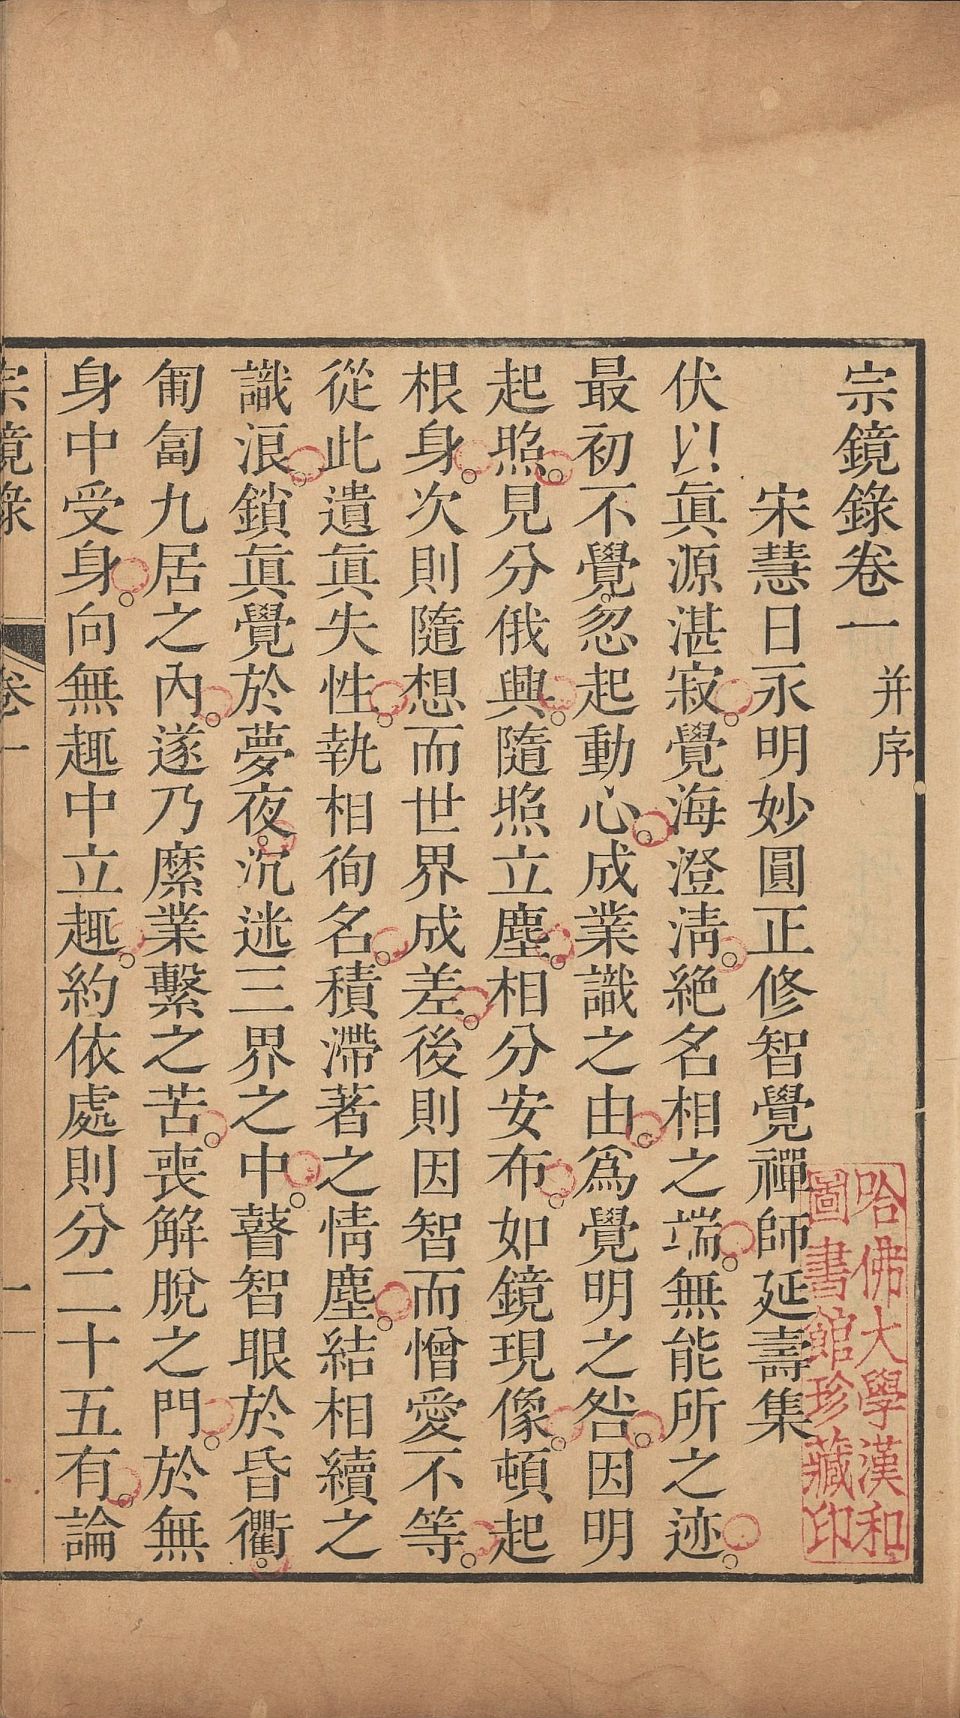 宗鏡錄卷一 并序
宋慧日永明妙圓正修智覺禪師延壽集
伏以眞源湛寂。覺海澄淸。絕名相之端。無能所之迹。
最初不覺。忽起動心。成業識之由。爲覺明之咎。因明
起照。見分俄興。隨照立塵。相分安布。如鏡現像。頓起
根身。次則隨想而世界成差。後則因智而憎愛不等。
從此遺眞失性。執相徇名。積滯著之情塵。結相續之
識浪。鎖眞覺於夢夜。沉迷三界之中。瞽智眼於昏衢。
匍匐九居之內。遂乃縻業繫之苦。喪解脫之門。於無
身中受身。向無趣中立趣。約依處則分二十五有。論
宗鏡錄
卷一
一
哈佛大學漢和
圖書館珍藏印